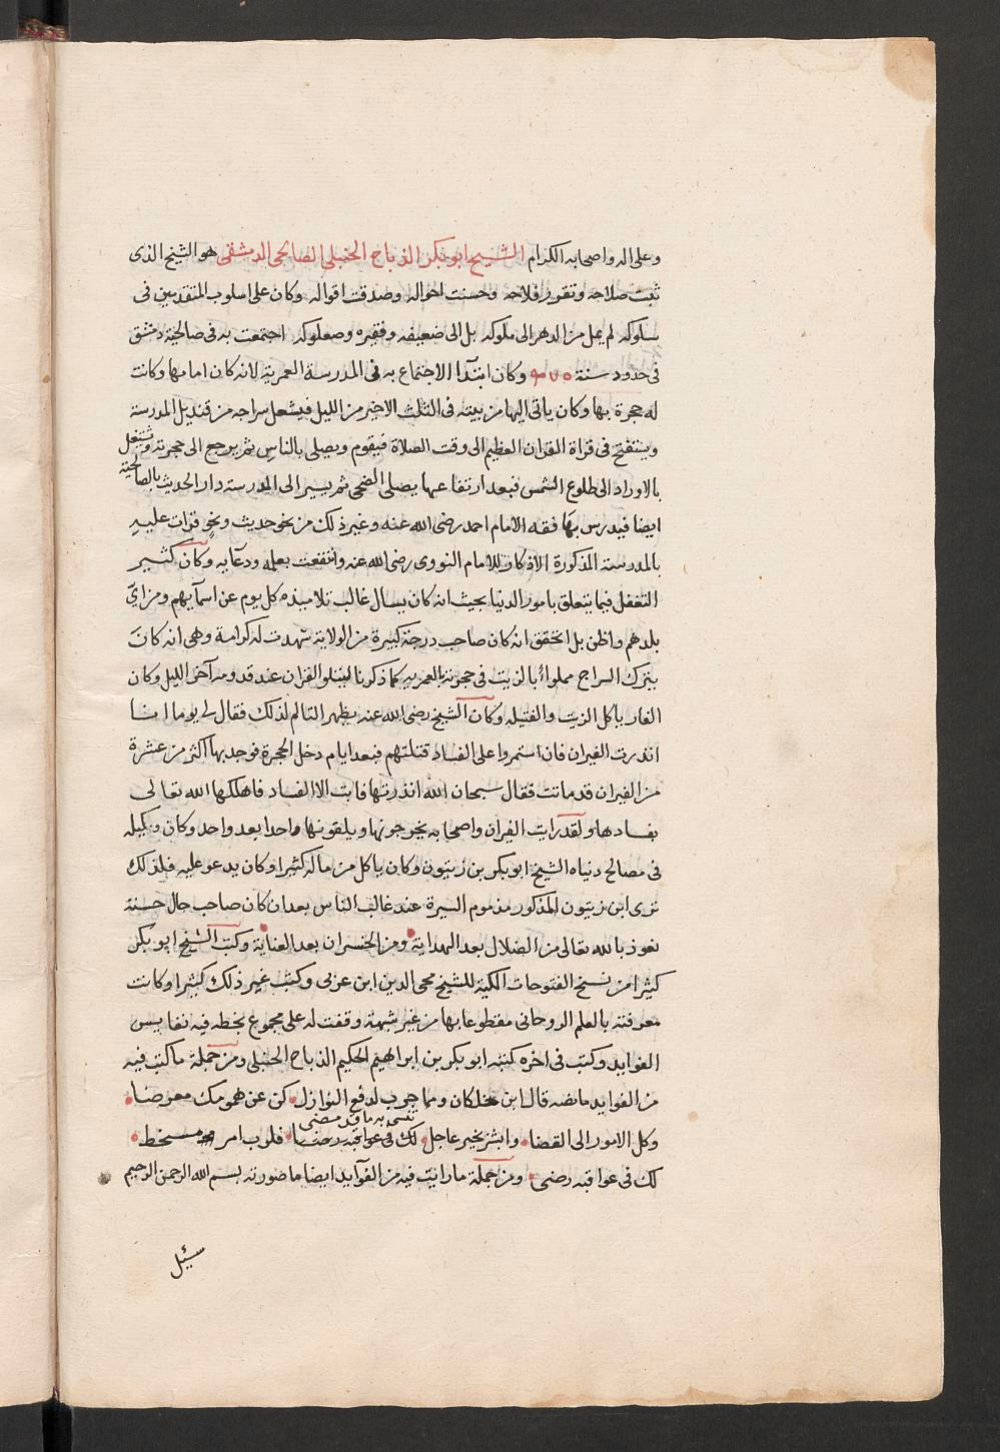 وعلى اله واصحابه الكرام الشيخ ابو بكر الذباح الحنبلى الصالحى الدمشقى هو الشيخ الذى
ثبت صلاحه وتقرر فلاحه وحسنت احواله وصدقت اقواله وكان على اسلوب المتقدمين فى
سلوكه لم يمل من الدهر الى ملوكه بل الى ضعيفه وفقيره وصعلوكه اجتمعت به فى صالحية دمشق
فى حدود سنة ٩٧٥ وكان ابتدآ الاجتماع به فى المدرسة العمرية لانه كان امامها وكانت
له حجرة بها وكان ياتى اليها من بيته فى الثلث الاخير من الليل فيشعل سراجه من قنديل المدرسة
ويستفتح فى قراة القران العظيم الى وقت الصلاة فيقوم ويصلى بالناس ثم يرجع الى حجرته ويشتغل
بالاوراد الى طلوع الشمس فبعد ارتفاعها يصلى الضحى ثم يسير الى المدرسة دار الحديث بالصالحية
ايضا فيدرس بها فقه الامام احمد رضى الله عنه وغير ذلك من نحو حديث ونحو قرات عليه
بالمدرسة المذكورة الاذكار للامام النووى رضى الله عنه وانتفعت بعلمه ودعايه وكان كثير
التغفل فيما يتعلق بامور الدنيا بحيث انه كان يسال غالب تلاميذه كل يوم عن اسمآيهم ومن اىّ
بلدهم واظن بل اتحقق انه كان صاحب درجة كبيرة من الولاية شهدت له كرامة وهى انه كان
يترك السراج مملواً بالزيت فى حجرته بالعمرية كما ذكرنا ليتلو القران عند قدومه آخر الليل وكان
الفار ياكل الزيت والفتيله وكان الشيخ رضى الله عنه يظهر التالم لذلك فقال لى يوما انا
انذرت الفيران فان استمروا على الفساد قتلتهم فبعد ايام دخل الحجرة فوجد بها اكثر من عشرة
من الفيران قد ماتت فقال سبحان الله انذرتها فابت الا الفساد فاهلكها الله تعالى
بفسادها ولقد رايت الفيران واصحابه يخرجونها ويلقونها واحدا بعد واحد وكان وكيله
فى مصالح دنياه الشيخ ابو بكر بن زيتون وكان ياكل من ماله كثيرا وكان يدعو عليه فلذلك
ترى ابن زيتون المذكور مذموم السيرة عند غالب الناس بعد ان كان صاحب حال حسنة
نعوذ بالله تعالى من الضلال بعد الهداية ومن الخسران بعد العناية وكتب الشيخ ابو بكر
كثيرا من نسخ الفتوحات المكية للشيخ محيى الدين ابن عربى وكتب غير ذلك كثيرا وكانت
معرفته بالعلم الروحانى مقطوعا بها من غير شبهة وقفت له على مجموع بخطه فيه نفايس
الفوايد وكتب فى اخره كتبه ابو بكر بن ابراهيم الحكيم الذباح الحنبلى ومن جملة ما كتب فيه
من الفوايد ما نصه قال ابن خلكان ومما جرب لدفع النوازل كن عن همومك معرضا
وكل الامور الى القضا وابشر بخير عاجل تنسى به ما قد مضى فلرب امر مسخط
لك فى عواقبه رضى ومن جملة ما رايت فيه من الفوآيد ايضا ما صورته بسم الله الرحمن الرحيم
سئيل